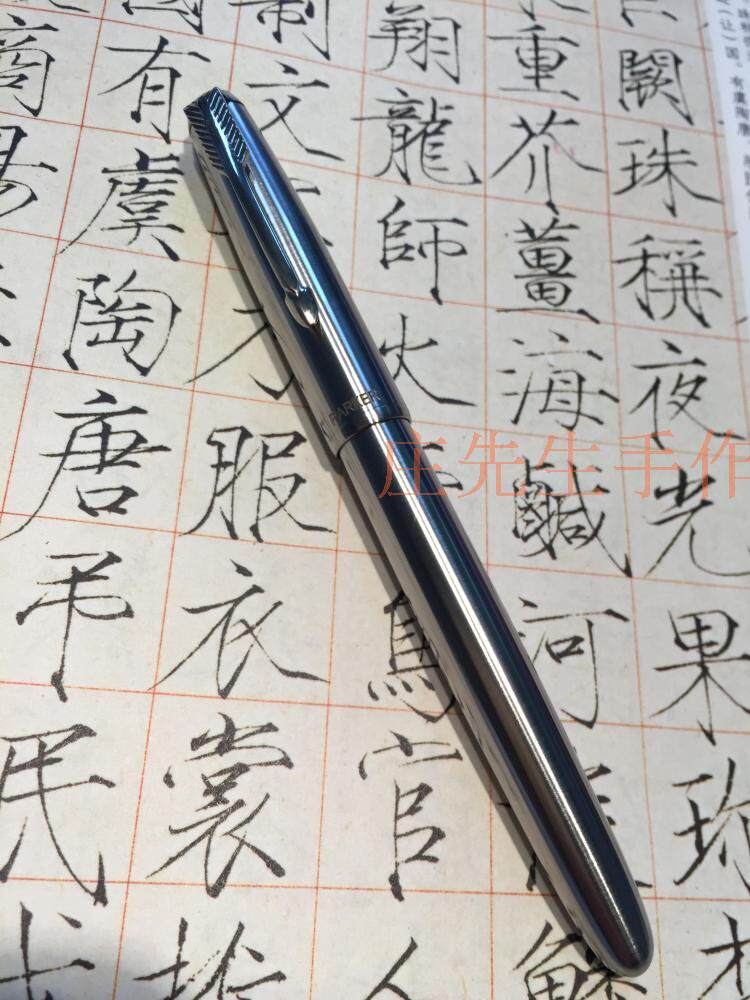 闕珠稱夜光果珍
重芥薑海鹹河
翔龍師火鳥官人
制文乃服衣裳推
有虞陶唐吊民伐
商湯
PARKER
庄先生手作